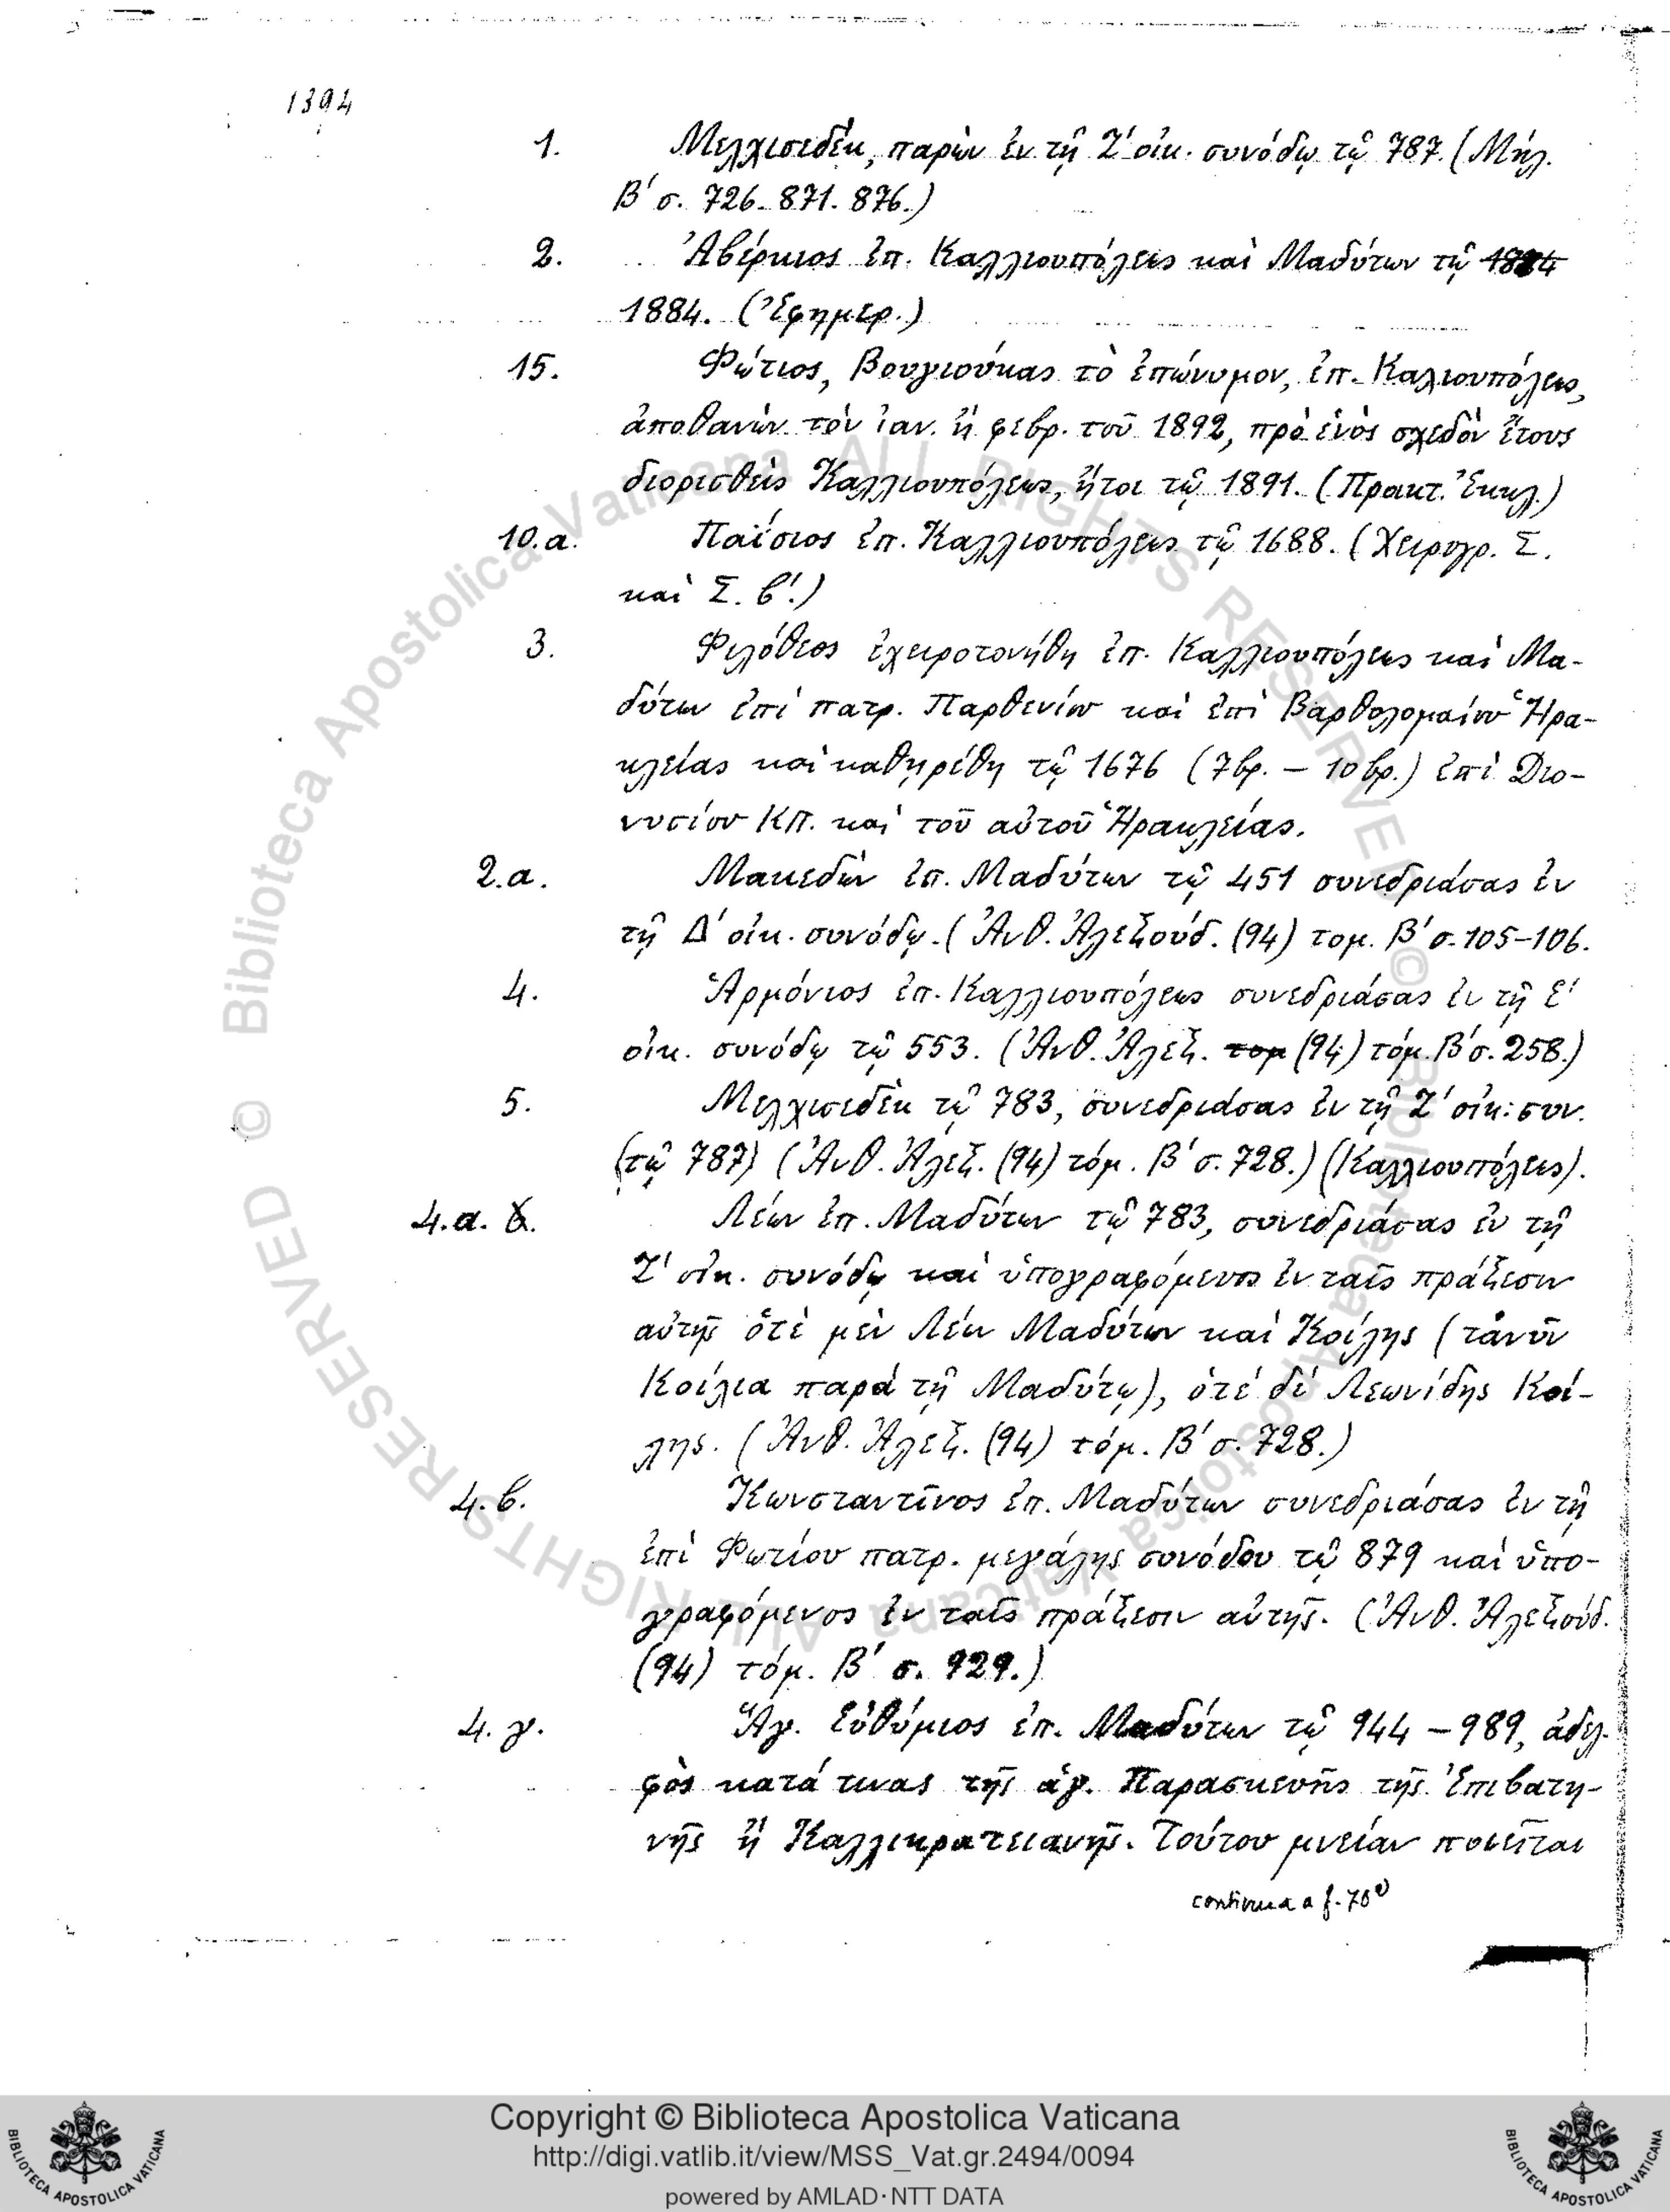 1394
1. Μελχισεδὲκ, παρὼν ἐν τῇ Ζ′ οἰκ. συνόδῳ τῷ 787. (Μήλ.
Β′ σ. 726. 871. 876.)
2. Ἀβέρκιος ἐπ. Καλλιουπόλεως καὶ Μαδύτων τῷ
1884. (Ἐφημερ.)
15. Φώτιος, Βουγιούκας τὸ ἐπώνυμον, ἐπ. Καλιουπόλεως,
ἀποθανὼν τὸν ἰαν. ἢ φεβρ. τοῦ 1892, πρὸ ἑνὸς σχεδὸν ἔτους
διορισθεὶς Καλλιουπόλεως, ἤτοι τῷ 1891. (Πρακτ. Ἐκκλ.)
10.α. Παΐσιος ἐπ. Καλλιουπόλεως τῷ 1688. (Χειρογρ. Σ.
καὶ Σ. β′.)
3. Φιλόθεος ἐχειροτονήθη ἐπ. Καλλιουπόλεως καὶ Μα-
δύτων ἐπὶ πατρ. Παρθενίου καὶ ἐπὶ Βαρθολομαίου Ἡρα-
κλείας καὶ καθῃρέθη τῷ 1676 (7βρ. – 10βρ.) ἐπὶ Διο-
νυσίου ΚΠ. καὶ τοῦ αὐτοῦ Ἡρακλείας.
2.α. Μακεδὼν ἐπ. Μαδύτων τῷ 451 συνεδριάσας ἐν
τῇ Δ′ οἰκ. συνόδῳ. (Ἀνθ. Ἀλεξούδ. (94) τομ. Β′ σ. 105–106.
4. Ἁρμόνιος ἐπ. Καλλιουπόλεως συνεδριάσας ἐν τῇ Ε′
οἰκ. συνόδῳ τῷ 553. (Ἀνθ. Ἀλεξ. τομ (94) τόμ. Β′ σ. 258.)
5. Μελχισεδὲκ τῷ 783, συνεδριάσας ἐν τῇ Ζ′ οἰκ. συν.
(τῷ 787) (Ἀνθ. Ἀλεξ. (94) τόμ. Β′ σ. 728.) (Καλλιουπόλεως).
4.α. Λέων ἐπ. Μαδύτων τῷ 783, συνεδριάσας ἐν τῇ
Ζ′ οἰκ. συνόδῳ καὶ ὑπογραφόμενος ἐν ταῖς πράξεσιν
αὐτῆς ὁτὲ μὲν Λέων Μαδύτων καὶ Κοίλης (τἀνῦν
Κοίλια παρὰ τῇ Μαδύτῳ), ὁτὲ δὲ Λεωνίδης Κοί-
λης. (Ἀνθ. Ἀλεξ. (94) τόμ. Β′ σ. 728.)
4.β. Κωνσταντῖνος ἐπ. Μαδύτων συνεδριάσας ἐν τῇ
ἐπὶ Φωτίου πατρ. μεγάλης συνόδου τῷ 879 καὶ ὑπο-
γραφόμενος ἐν ταῖς πράξεσιν αὐτῆς. (Ἀνθ. Ἀλεξούδ.
(94) τόμ. Β′ σ. 929.)
4.γ. Ἅγ. Εὐθύμιος ἐπ. Μαδύτων τῷ 944 – 989, ἀδελ-
φὸς κατά τινας τῆς ἁγ. Παρασκευῆς τῆς Ἐπιβατη-
νῆς ἢ Καλλικρατειανῆς. Τούτου μνείαν ποιεῖται
continua a f. 78v
© Biblioteca Apostolica Vaticana ALL RIGHTS RESERVED © Biblioteca Apostolica Vaticana ALL RIGHTS RESERVED
Copyright © Biblioteca Apostolica Vaticana
http://digi.vatlib.it/view/MSS_Vat.gr.2494/0094
powered by AMLAD·NTT DATA
BIBLIOTECA APOSTOLICA VATICANA
BIBLIOTECA APOSTOLICA VATICANA